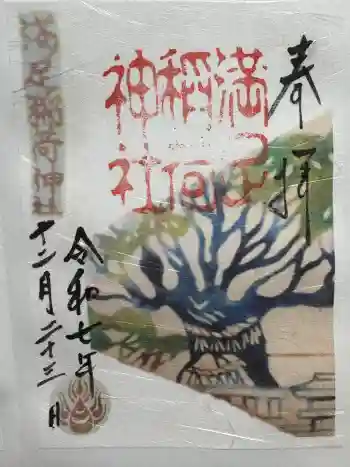 奉拝
満足
稲荷
神社
令和七年
十二月二十三日
満足稲荷神社